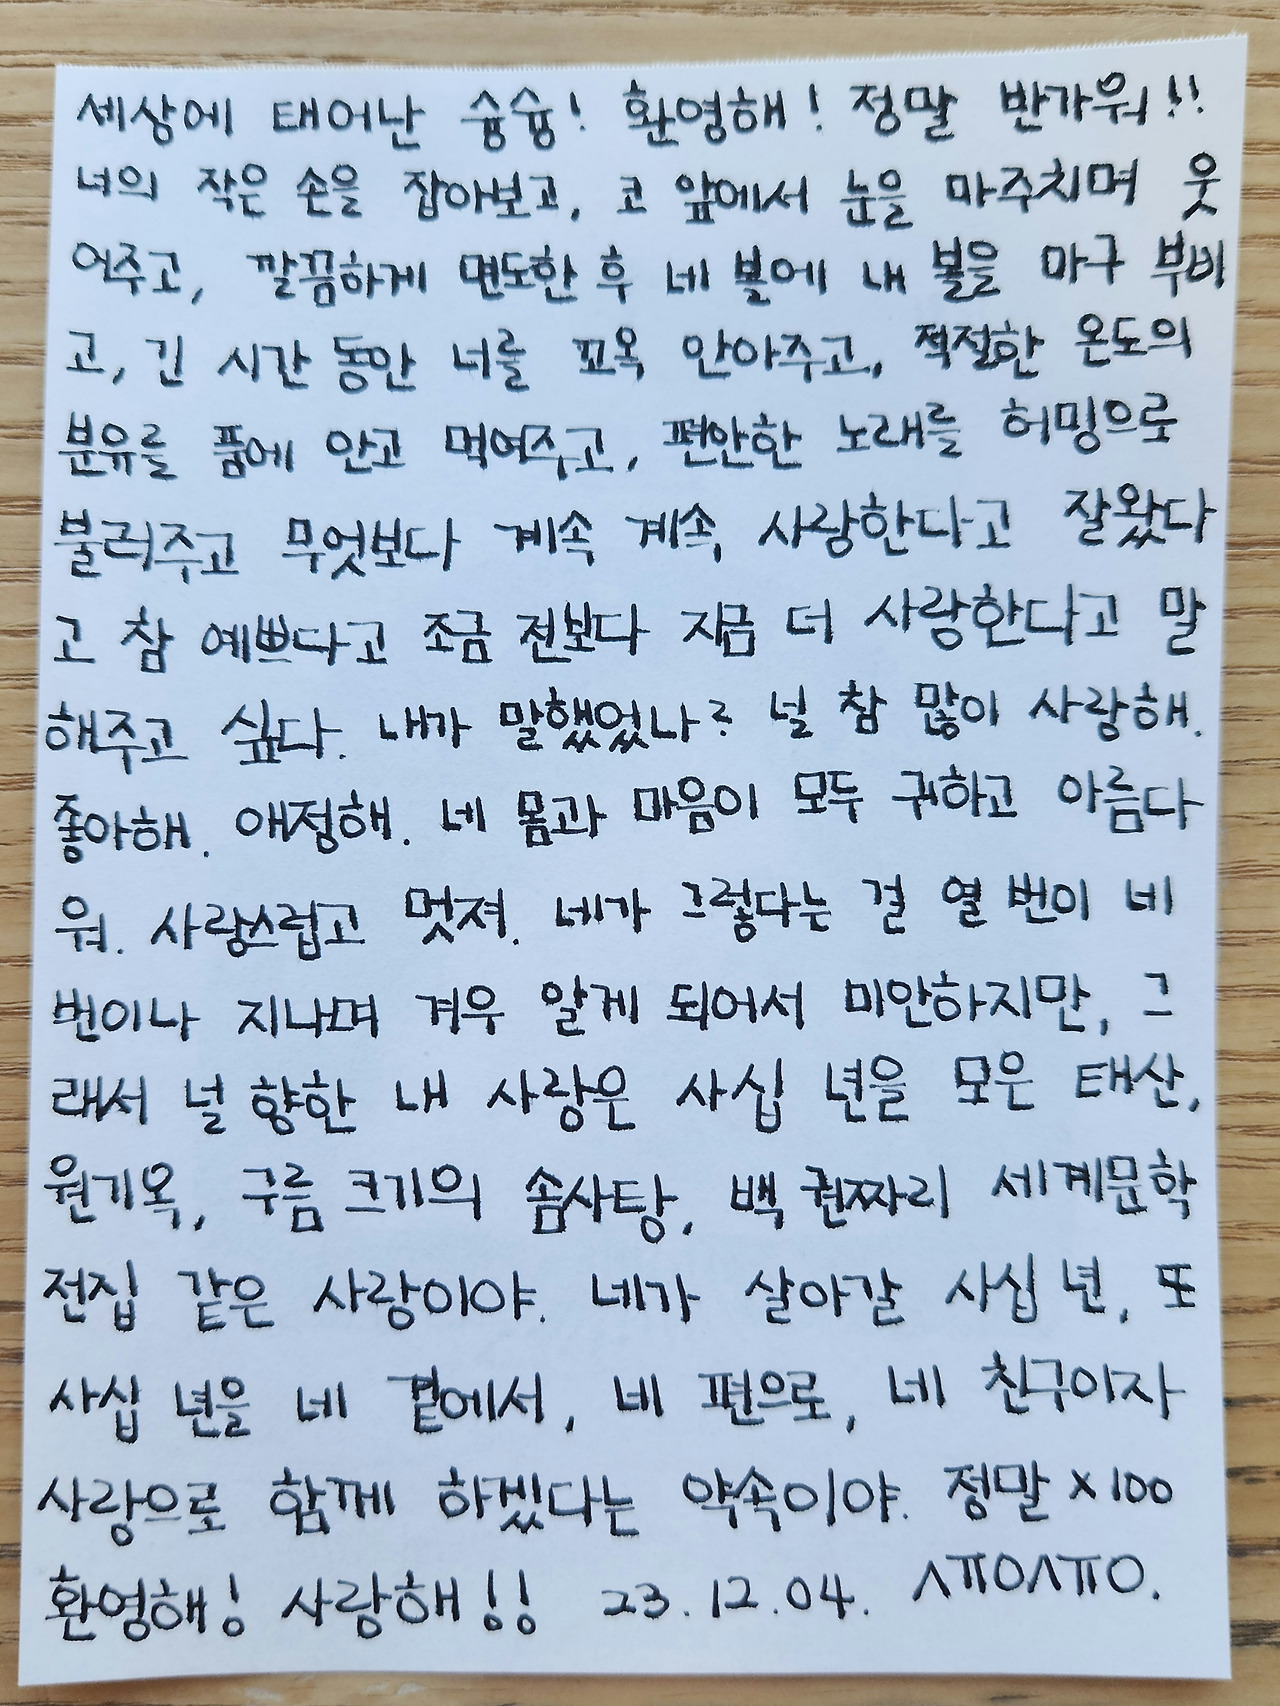 세상에 태어난 슝슝! 환영해! 정말 반가워!!
너의 작은 손을 잡아보고, 코 앞에서 눈을 마주치며 웃
어주고, 깔끔하게 면도한 후 네 볼에 내 볼을 마구 부비
고, 긴 시간 동안 너를 꼬옥 안아주고, 적절한 온도의
분유를 품에 안고 먹여주고, 편안한 노래를 허밍으로
불러주고 무엇보다 계속 계속 사랑한다고 잘왔다
고 참 예쁘다고 조금 전보다 지금 더 사랑한다고 말
해주고 싶다. 내가 말했었나? 널 참 많이 사랑해.
좋아해. 애정해. 네 몸과 마음이 모두 귀하고 아름다
워. 사랑스럽고 멋져. 네가 그렇다는 걸 열 번이 네
번이나 지나며 겨우 알게 되어서 미안하지만, 그
래서 널 향한 내 사랑은 사십 년을 모은 태산,
원기옥, 구름 크기의 솜사탕, 백 권짜리 세계문학
전집 같은 사랑이야. 네가 살아갈 사십 년, 또
사십 년을 네 곁에서, 네 편으로, 네 친구이자
사랑으로 함께 하겠다는 약속이야. 정말 x100
환영해! 사랑해!! 23.12.04. ㅅㅠㅇㅅㅠㅇ.